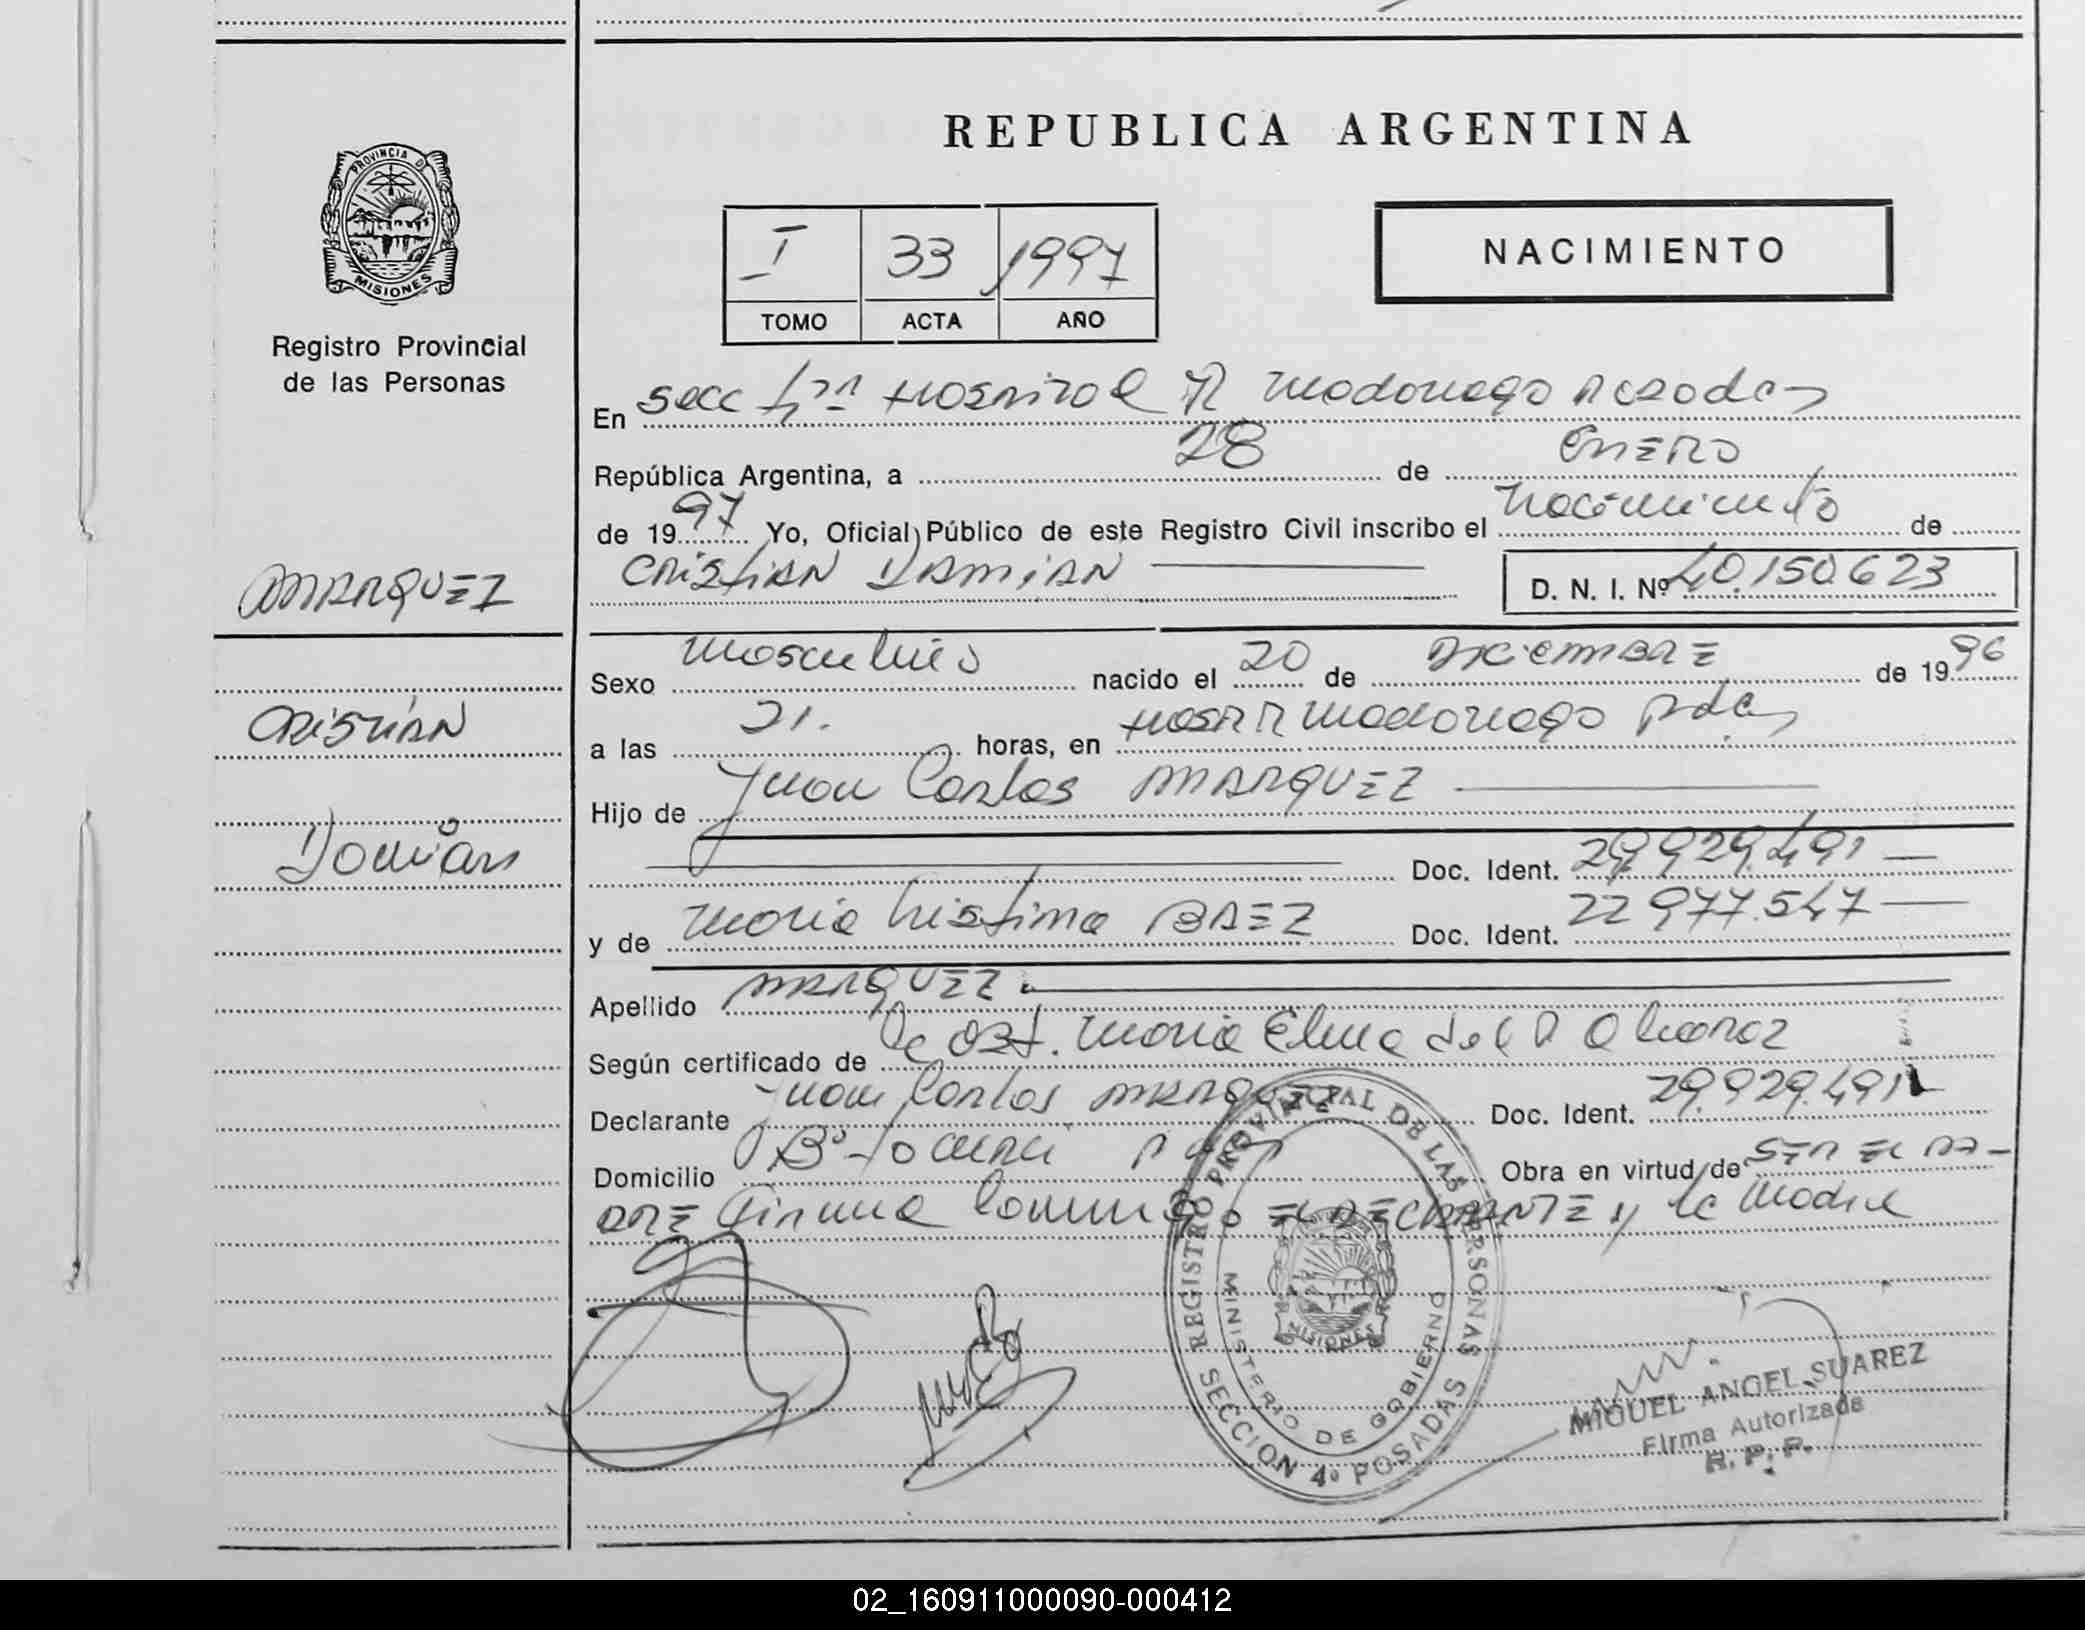 PROVINCIA DE
MISIONES
Registro Provincial
de las Personas
MARQUEZ
CRISTIAN
Damián
REPUBLICA ARGENTINA
I 33 1997
TOMO ACTA AÑO
NACIMIENTO
En Secc 4ta Hospital R Madariaga Posadas
República Argentina, a 28 de ENERO
de 1997 Yo, Oficial Público de este Registro Civil inscribo el nacimiento de
CRISTIAN DAMIAN D. N. I. Nº 40.150.623
Sexo masculino nacido el 20 de DICIEMBRE de 1996
a las 21. horas, en HOSP R Madariaga Pdas
Hijo de Juan Carlos MARQUEZ
Doc. Ident. 29.929.491
y de Maria Cristina BAEZ Doc. Ident. 22977.547
Apellido MARQUEZ
Según certificado de la Obst. Maria Elena del Alvarez
Declarante Juan Carlos MARQUEZ Doc. Ident. 29.929.491
Domicilio Bº Obra en virtud de SER EL PA-
DRE Firma EL DECLARANTE y la Madre
REGISTRO PROVINCIAL DE LAS PERSONAS
MINISTERIO DE GOBIERNO
MISIONES
SECCION 4º POSADAS
MIGUEL ANGEL SUAREZ
Firma Autorizada
R. P. P.
02_160911000090-000412